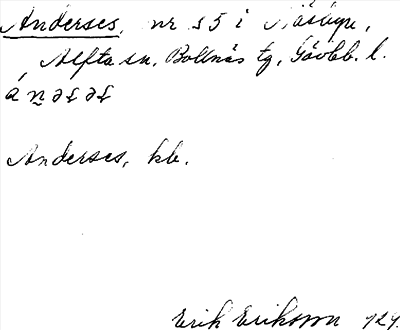 Anderses, nr 85 i Näsbyn,
Alfta sn, Bollnäs tg, Gävbb. l.
Anderses, kb.
Erik Eriksson 129.